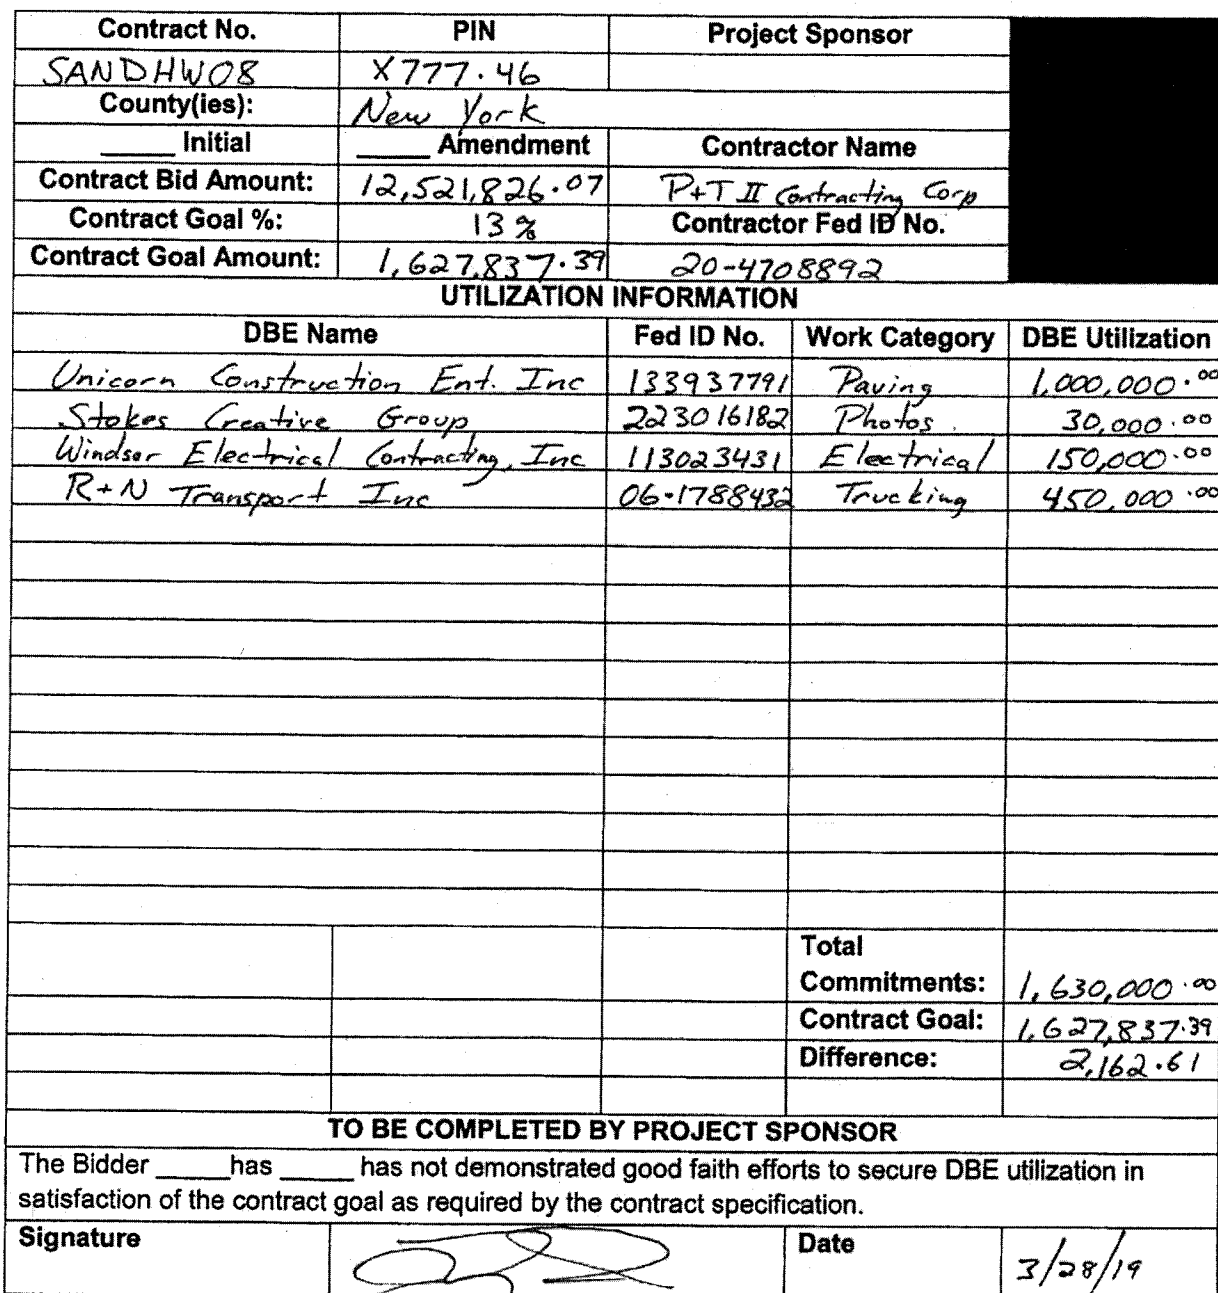 Contract No. PIN Project Sponsor
SANDHW08 X777.46
County(ies): New York
_____ Initial _____ Amendment Contractor Name
Contract Bid Amount: 12,521,826.07 P+T II Contracting Corp
Contract Goal %: 13% Contractor Fed ID No.
Contract Goal Amount: 1,627,837.39 20-4708892
UTILIZATION INFORMATION
DBE Name Fed ID No. Work Category DBE Utilization
Unicorn Construction Ent. Inc 133937791 Paving 1,000,000.00
Stokes Creative Group 223016182 Photos 30,000.00
Windsor Electrical Contracting, Inc 113023431 Electrical 150,000.00
R+N Transport Inc 06-1788432 Trucking 450,000.00
Total
Commitments: 1,630,000.00
Contract Goal: 1,627,837.39
Difference: 2,162.61
TO BE COMPLETED BY PROJECT SPONSOR
The Bidder _____has _____ has not demonstrated good faith efforts to secure DBE utilization in
satisfaction of the contract goal as required by the contract specification.
Signature Date 3/28/19